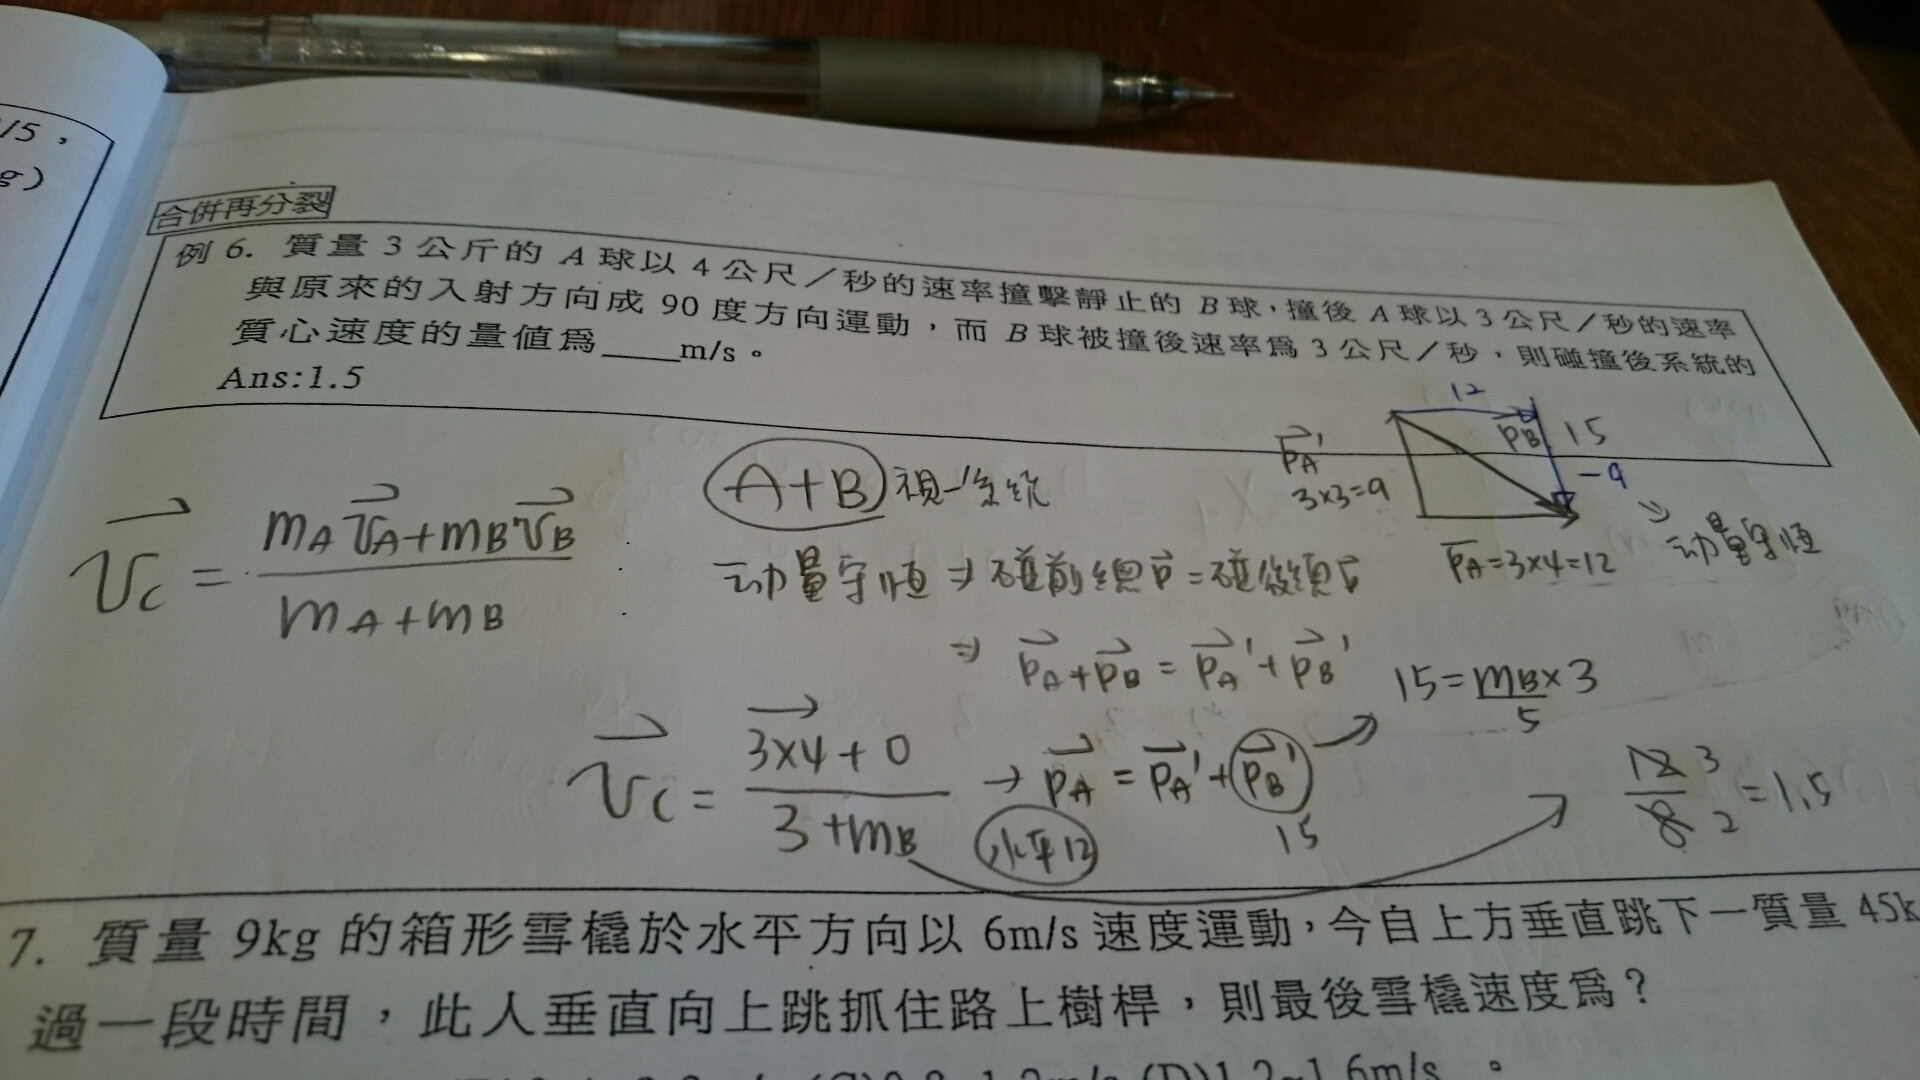 15，
g)
合併再分裂
例 6. 質量 3 公斤的 A 球以 4 公尺／秒的速率撞擊靜止的 B 球，撞後 A 球以 3 公尺／秒的速率
與原來的入射方向成 90 度方向運動，而 B 球被撞後速率為 3 公尺／秒，則碰撞後系統的
質心速度的量值為____m/s。
Ans:1.5
12
PB 15
PA'
3×3=9
-9
PA=3×4=12
⇒ 动量守恒
A+B 視一系統
vc = mAvA+mBvB / mA+mB
动量守恒 ⇒ 碰前總P=碰後總P
⇒ PA+PB = PA'+PB'
15=mB×3
5
vc = 3×4+0 / 3+mB
→ PA = PA'+PB'
水平12
15
12 3 / 8 2 =1.5
7. 質量 9kg 的箱形雪橇於水平方向以 6m/s 速度運動，今自上方垂直跳下一質量 45k
過一段時間，此人垂直向上跳抓住路上樹桿，則最後雪橇速度為？
(D)1.2~1.6m/s 。